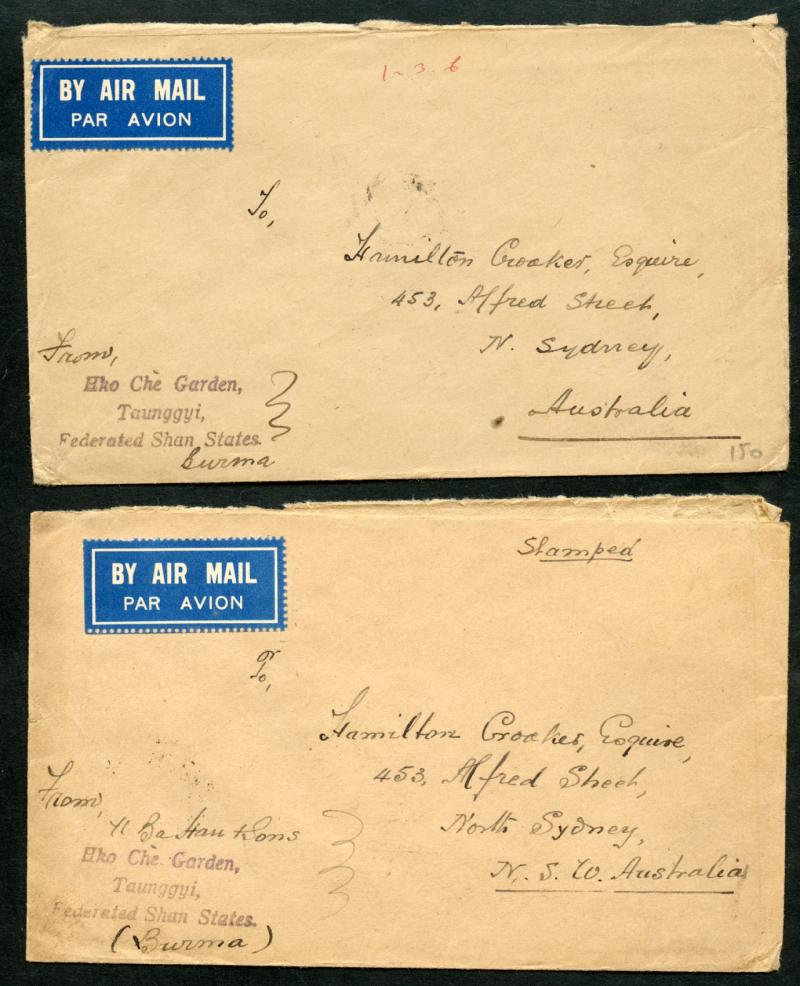 1-3.6
BY AIR MAIL
PAR AVION
To,
Hamilton Croaker, Esquire,
453, Alfred Street,
N. Sydney,
Australia
From,
Hko Chè Garden,
Taunggyi,
Federated Shan States.
Burma
150
Stamped
BY AIR MAIL
PAR AVION
To,
Hamilton Croaker, Esquire,
453, Alfred Street,
North Sydney,
N. S. W. Australia
From,
Hko Chè Garden,
Taunggyi,
Federated Shan States.
(Burma)